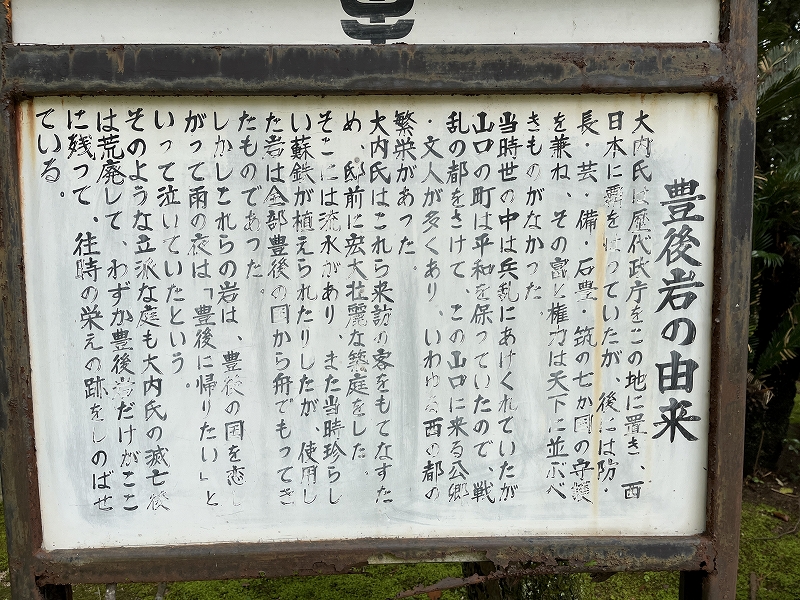 豊後岩の由来
大内氏は歴代政庁をこの地に置き、西
日本に覇をはっていたが、後には防・
長・芸・備・石豊・筑の七か国の守護
を兼ね、その富と権力は天下に並ぶべ
きものがなかった。
当時世の中は兵乱にあけくれていたが
山口の町は平和を保っていたので、戦
乱の都をさけて、この山口に来る公卿
・文人が多くあり、いわゆる西の都の
繁栄があった。
大内氏はこれら来訪の客をもてなすた
め、邸前に宏大壮麗な築庭をした。
そこには流水があり また当時珍らし
い蘇鉄が植えられたりしたが、使用し
た岩は全部豊後の国から舟でもってき
たものであった。
しかしこれらの岩は、豊後の国を恋し
がって雨の夜は「豊後に帰りたい」と
いって泣いていたという。
そのような立派な庭も大内氏の滅亡後
は荒廃して、わずか豊後岩だけがここ
に残って、往時の栄えの跡をしのばせ
ている。